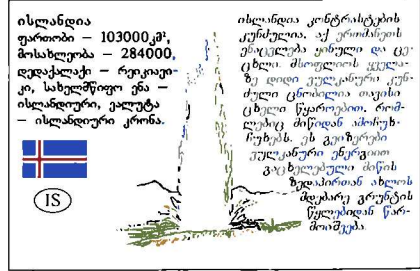 ისლანდია
ფართობი – 103000კმ²,
მოსახლეობა – 284000,
დედაქალაქი – რეიკიავი-
კი, სახელმწიფო ენა –
ისლანდიური, ვალუტა
– ისლანდიური კრონა.
IS
ისლანდია კონტრასტების
კუნძულია. აქ ერთმანეთს
ენაცვლება ყინული და ცე-
ცხლი. მსოფლიოს ყველა-
ზე დიდი ვულკანური კუნ-
ძული ცნობილია თავისი
ცხელი წყაროებით, რომ-
ლებიც მიწიდან ამოჩუხ-
ჩუხებს. ეს გეიზერები
ვულკანური ენერგიით
გაცხელებული მიწის
ზედაპირთან ახლოს
მდებარე გრუნტის
წყლებიდან წარ-
მოიშვება.